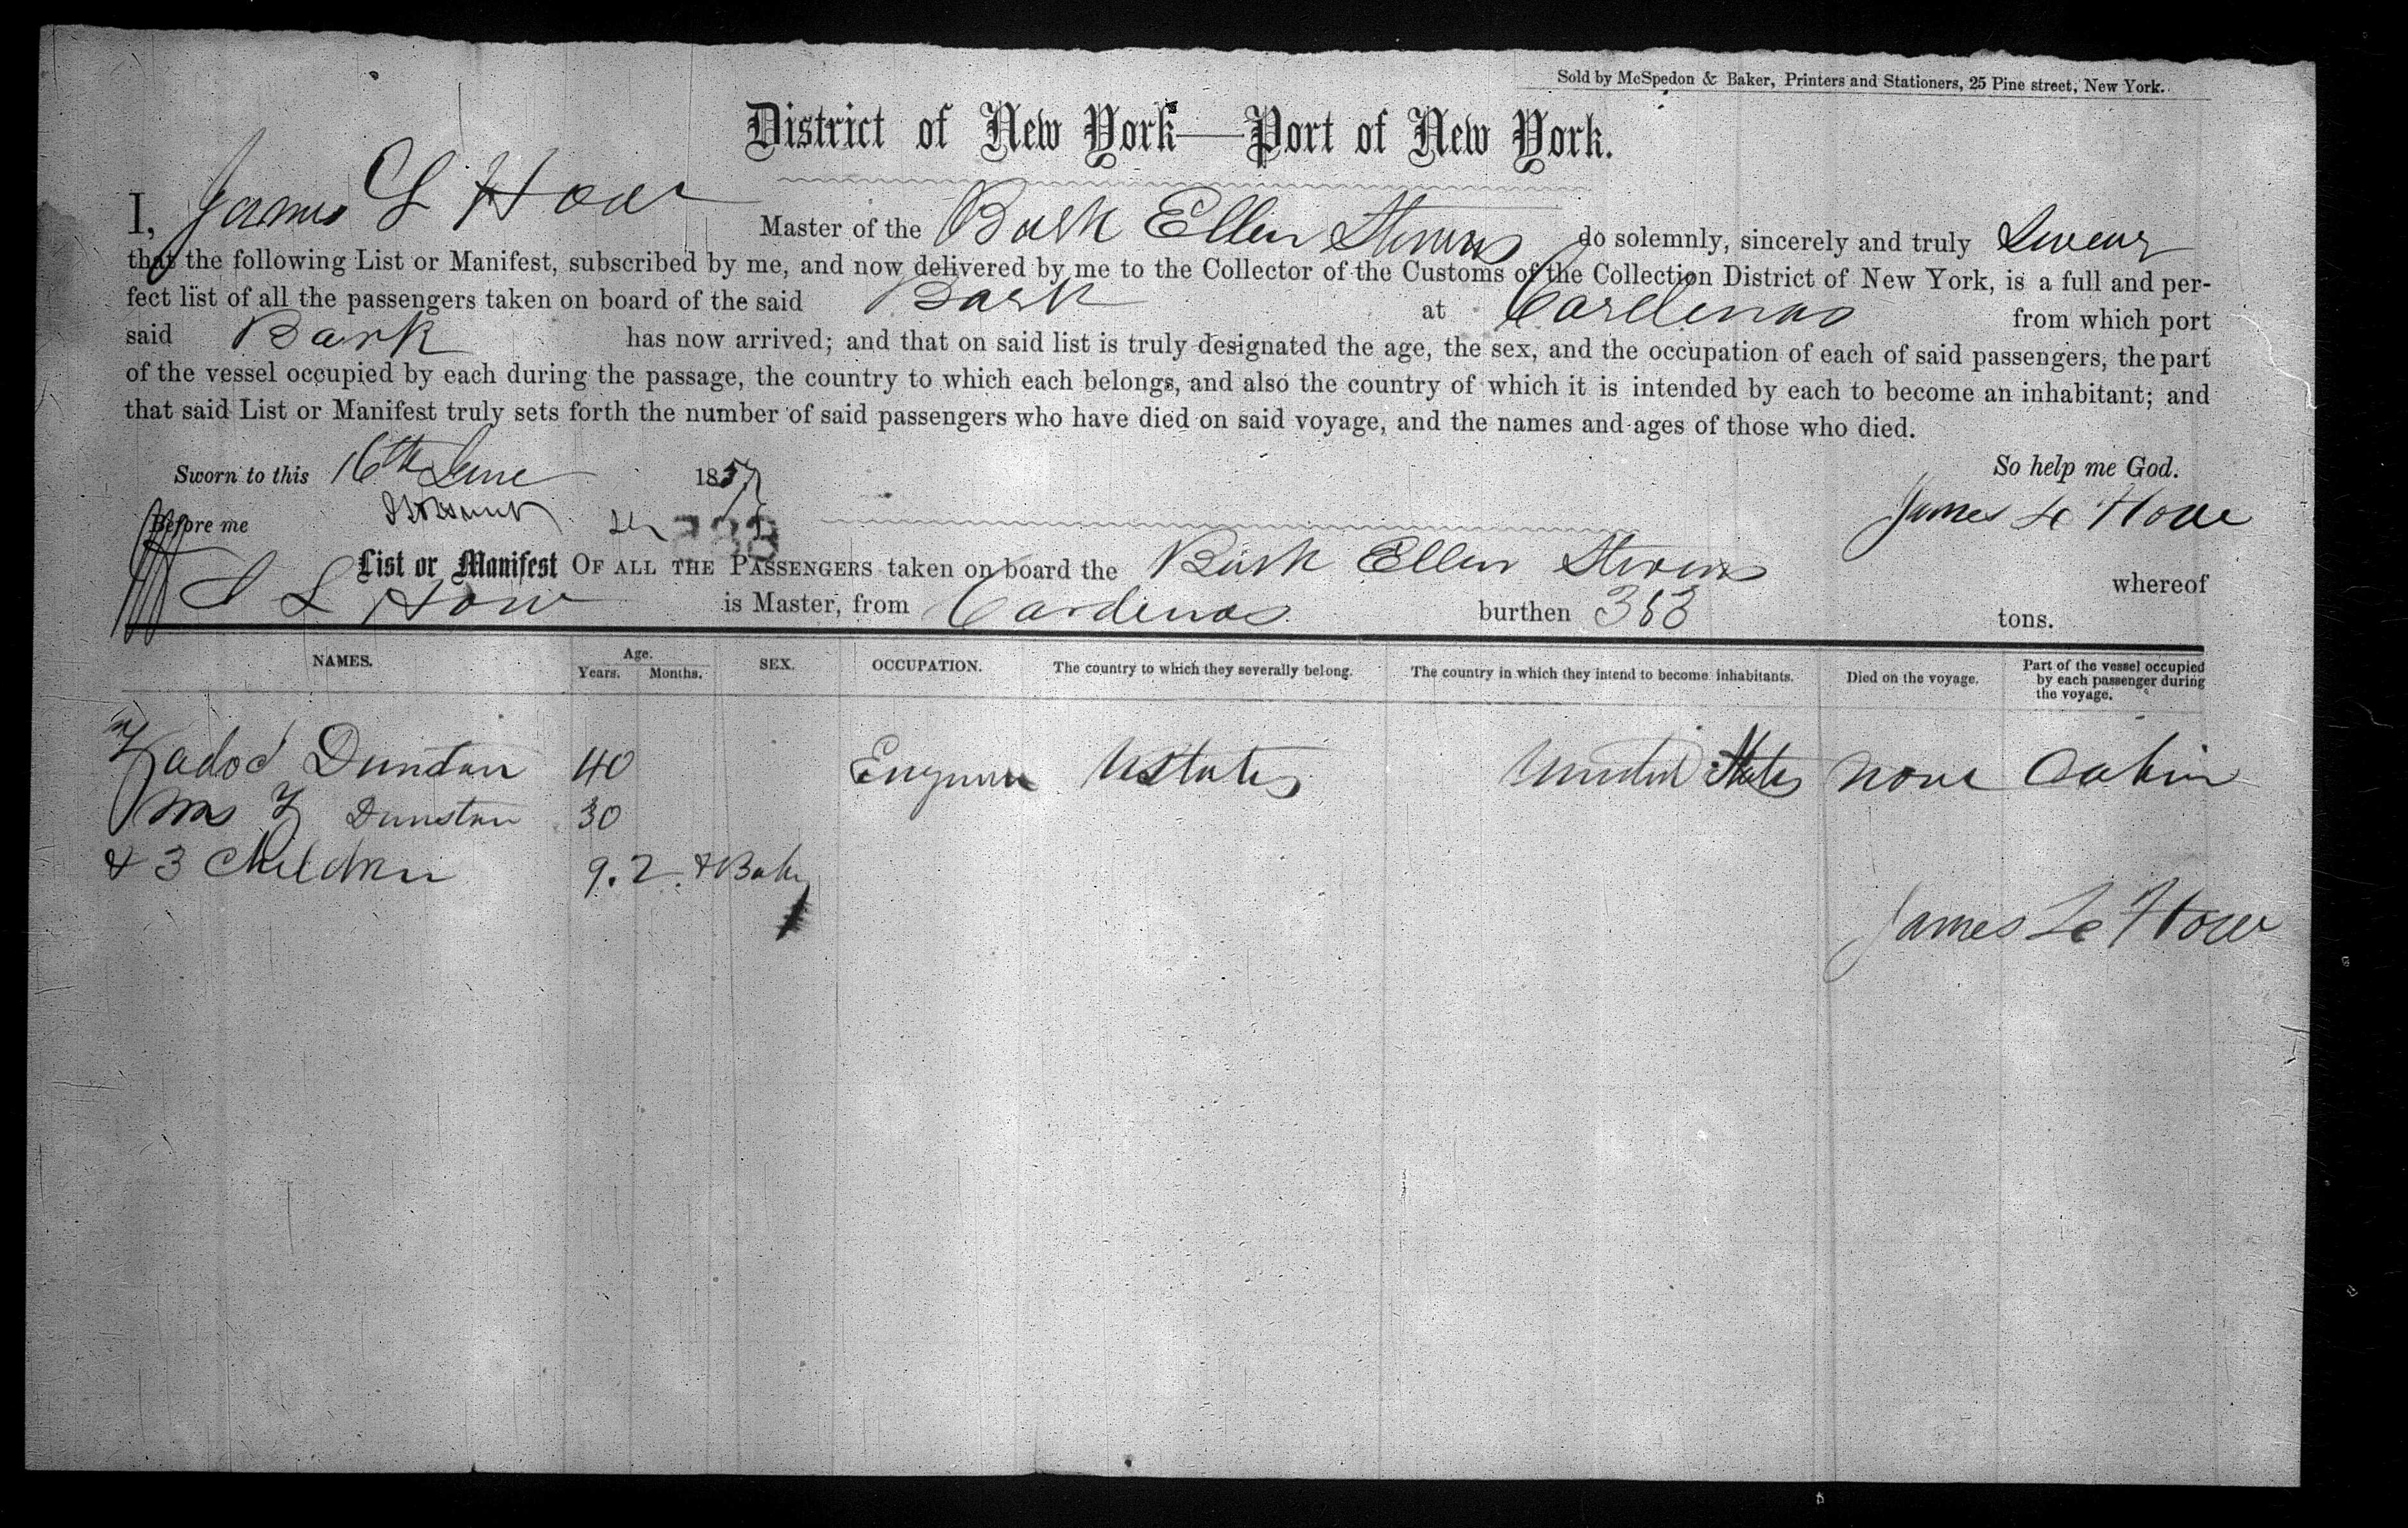 Sold by McSpedon & Baker, Printers and Stationers, 25 Pine street, New York.
District of New York—Port of New York.
I, James L Howe Master of the Bark Ellen Stevens do solemnly, sincerely and truly Swear
that the following List or Manifest, subscribed by me, and now delivered by me to the Collector of the Customs of the Collection District of New York, is a full and per-
fect list of all the passengers taken on board of the said Bark at Cardenas from which port
said Bark has now arrived; and that on said list is truly designated the age, the sex, and the occupation of each of said passengers, the part
of the vessel occupied by each during the passage, the country to which each belongs, and also the country of which it is intended by each to become an inhabitant; and
that said List or Manifest truly sets forth the number of said passengers who have died on said voyage, and the names and ages of those who died.
Sworn to this 16th June 1857 So help me God.
Before me James L Howe
List or Manifest OF ALL THE PASSENGERS taken on board the Bark Ellen Stevens whereof
J L Howe is Master, from Cardenas burthen 383 tons.
NAMES. Age. Years. Months. SEX. OCCUPATION. The country to which they severally belong. The country in which they intend to become inhabitants. Died on the voyage. Part of the vessel occupied by each passenger during the voyage.
Zadoc Dunstan 40 Engineer U States United States None Cabin
Mrs Z Dunstan 30
& 3 Children 9. 2. & Baby
James L Howe